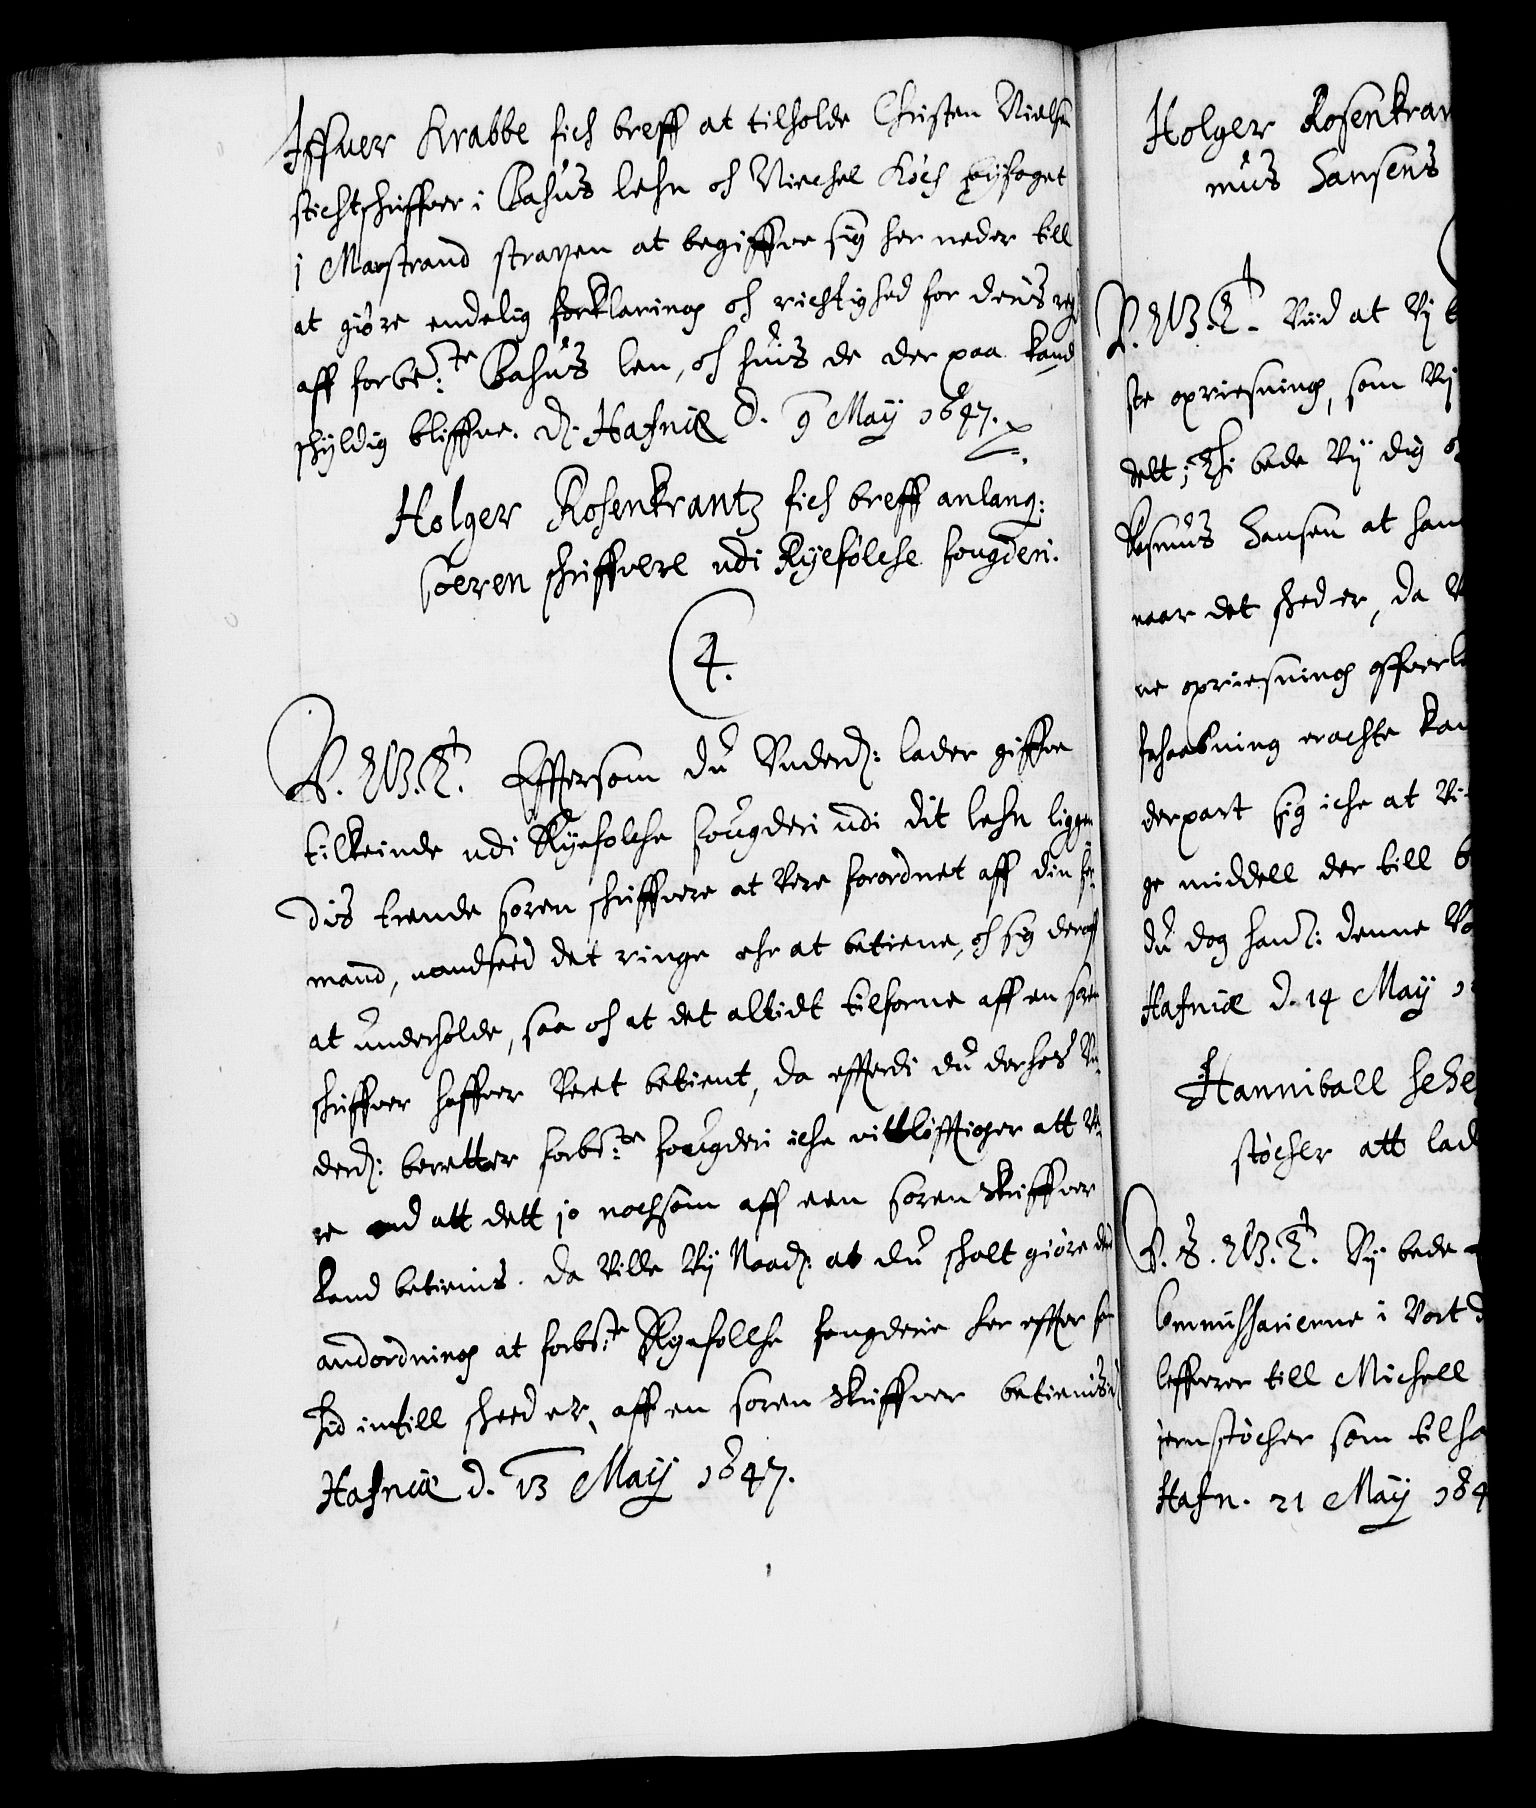 Iffuer Krabbe fich breff at tilholde Christen Nielsen
stichtschriffuer i Bahus lehn och Michel Koch byfoget
i Marstrand straxen at begiffue sig her neder till
at giöre endelig forklaring och richtighed for deris regs
aff forbe:te Bahus len, och huis de der paa kand
schyldig bliffue. d: Hafniæ d. 9 May 1647.
Holger Rosenkrantz fich breff anlang:
soeren schriffuere udi Ryefölche fougderi.
4.
V. G. T. Efftersom du Underd: lader giffue
tilkiende udi Ryefolche fougderi udi dit lehn liggen
dis trende soren schriffuere at vere forordnet aff din for-
mand, uandseed det ringe ehr at betiene, och sig deraff
at underholde, saa och at det altidt tilforne aff en soren
schriffuer haffuer veret betient, da effterdi du derhos Un-
derd: beretter forbe:te fougderi iche vittløfftiger att ve-
re end att dett jo nochsom aff een soren skriffuer
kand betienis. da ville vy Naad: at du schalt giöre den
andordning at forbe:te Ryefollche fougderie her effter
hid intill scheed er, aff en soren skriffuer betienis
Hafniæ d. 13 May 1647.
Holger Rosenkran
mus Hansens
V. G. T. Viid at Vy
ste opriesning, som Vy
delt; Thi bede Vy dig
Rasmus Hansen at han
naar det sched er, da
ne opriesning offuerl
kan
derpart sig iche at
ge middell der till
du dog hans: denne
Hafniæ d. 14 May
Hanniball Sehe
støcher att lad
V. S. G. T. Vy bede
Commissarierne i Vort
leffuerer till Michell
jernstøcher som tilho
Hafn. 21 May 164